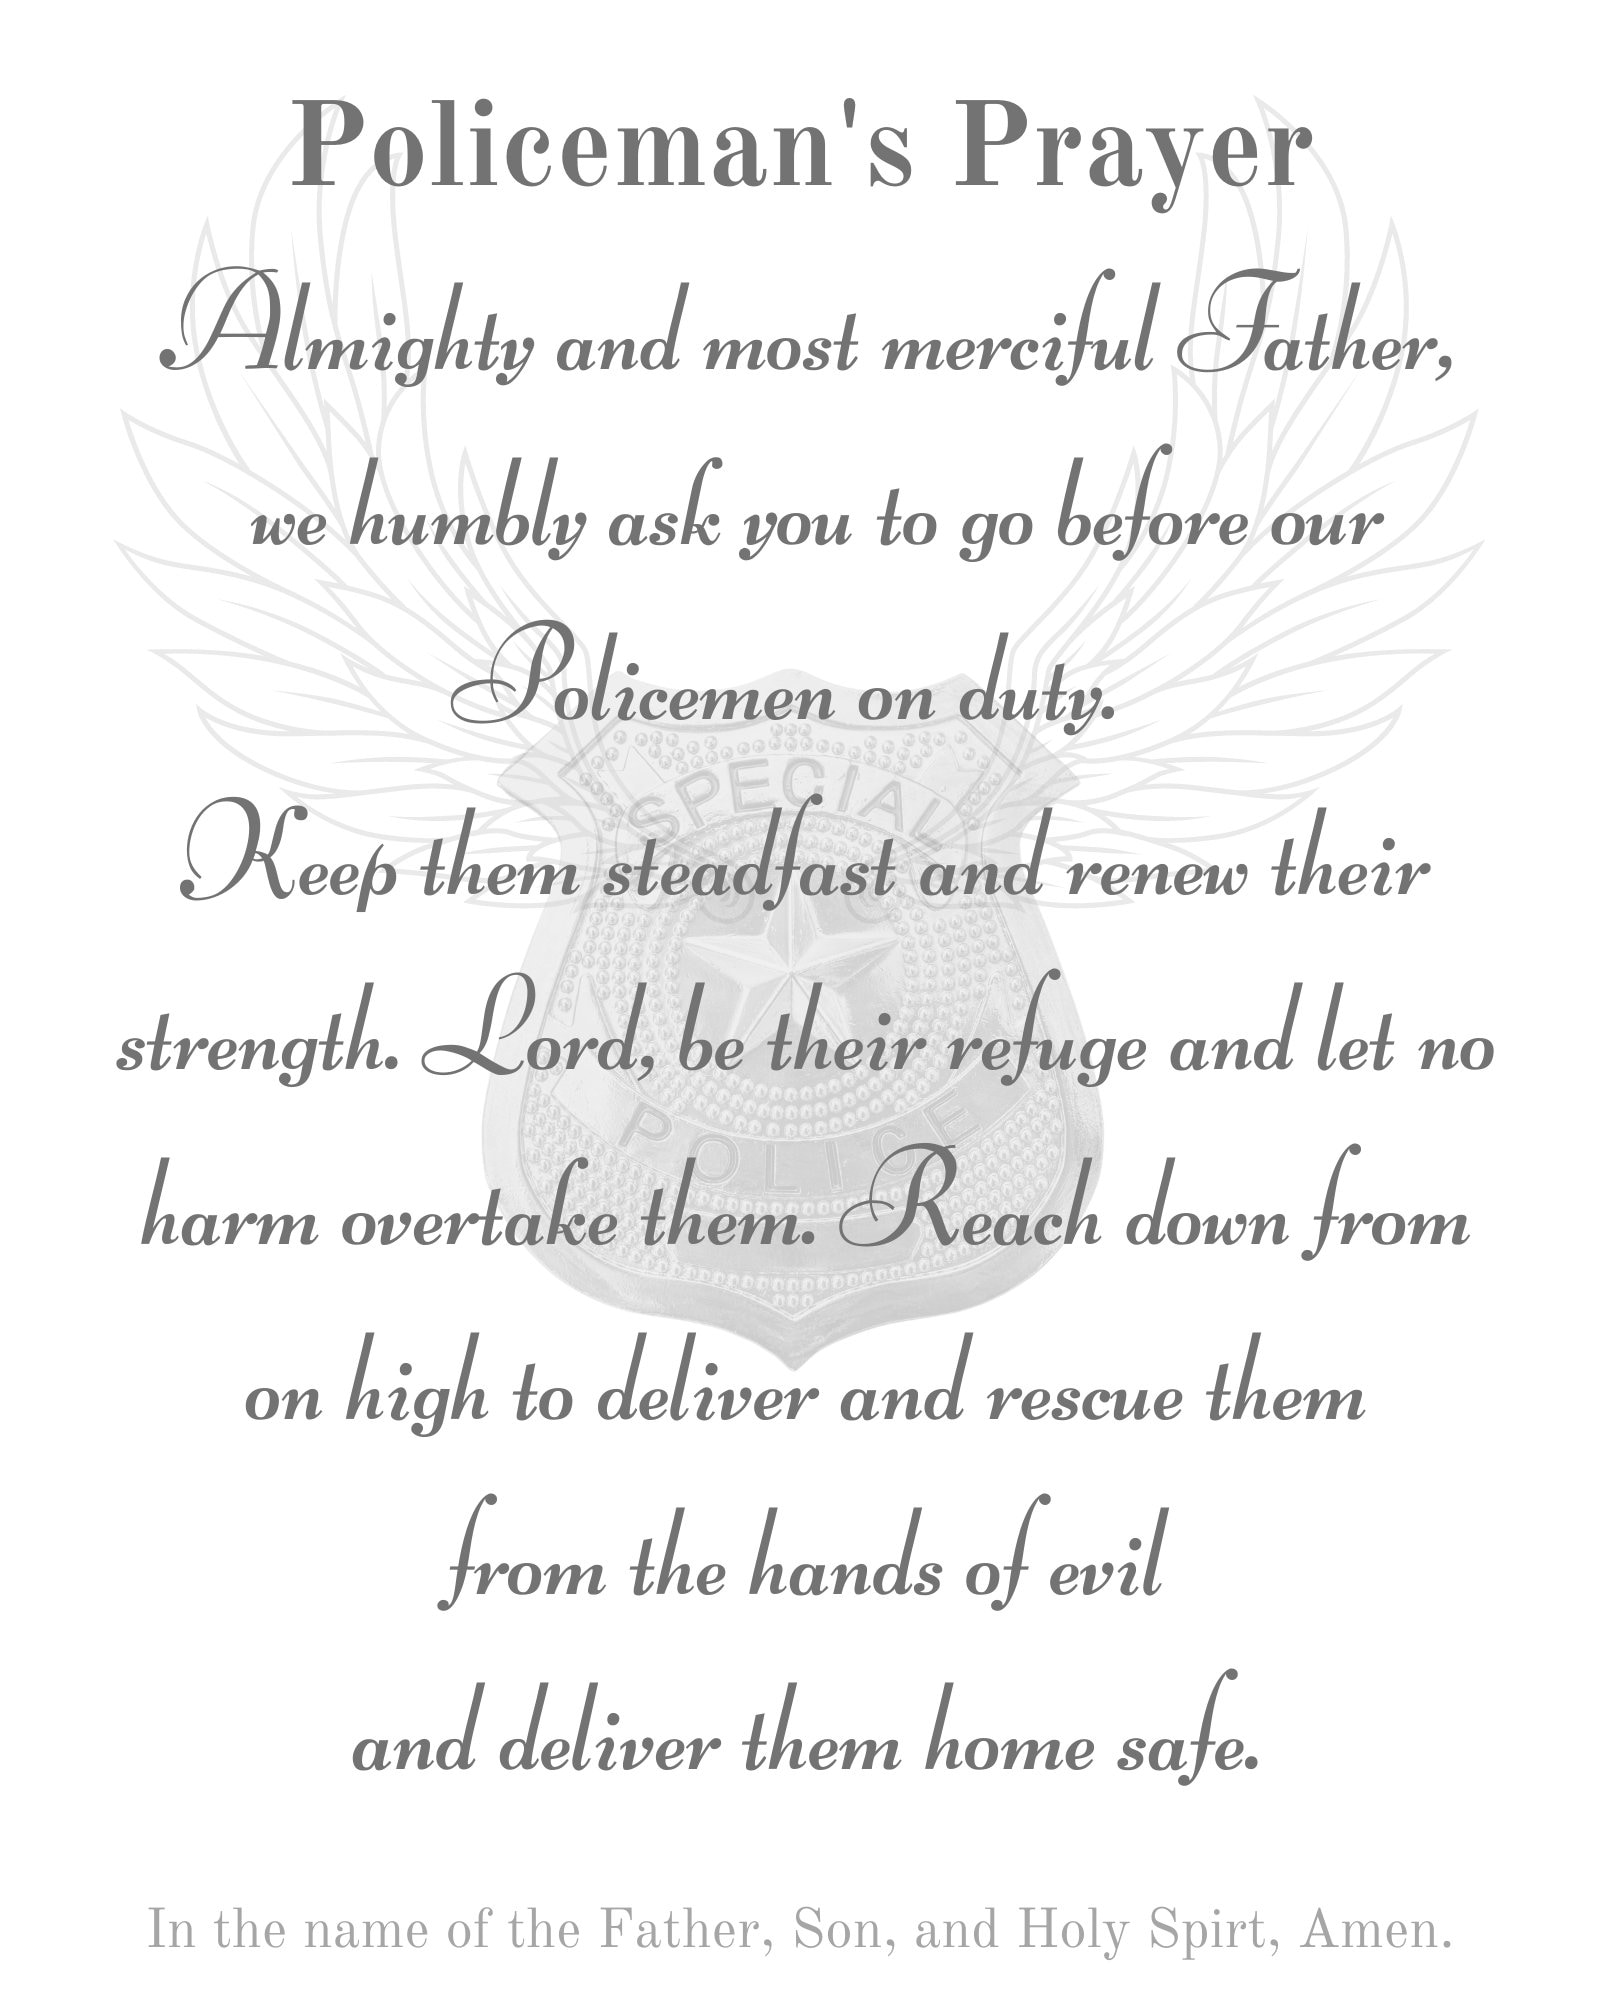 Policeman's Prayer
Almighty and most merciful Father,
we humbly ask you to go before our
Policemen on duty.
SPECIAL
Keep them steadfast and renew their
strength. Lord, be their refuge and let no
POLICE
harm overtake them. Reach down from
on high to deliver and rescue them
from the hands of evil
and deliver them home safe.
In the name of the Father, Son, and Holy Spirt, Amen.